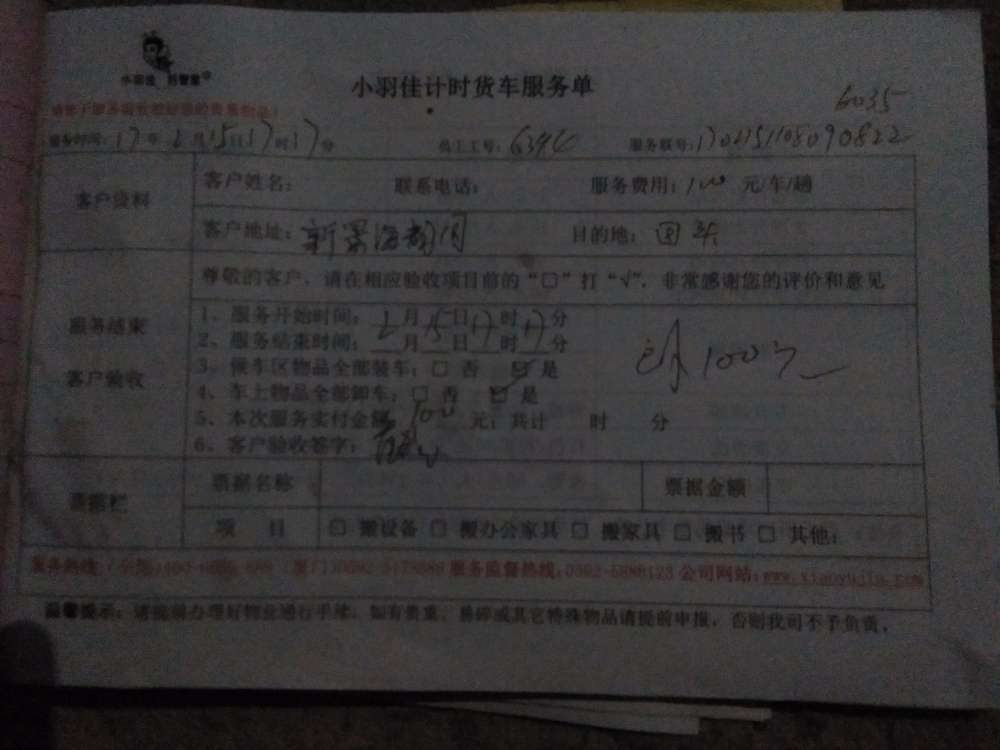 小羽佳计时货车服务单
6035
服务时间：17年2月15日17时17分
员工工号：
服务联号：
客户资料
客户姓名： 联系电话： 服务费用：100 元/车/趟
客户地址：新景海 目的地：
尊敬的客户，请在相应验收项目前的“□”打“√”，非常感谢您的评价和意见
服务结束
客户验收
1、服务开始时间：2月15日17时17分
2、服务结束时间：__月__日__时__分
3、搬车区物品全部装车：□ 否 ☑ 是
4、车上物品全部卸车：□ 否 ☑ 是
5、本次服务实付金额：100 元；共计 时 分
6、客户验收签字：
100元
票据栏
票据名称 票据金额
项 目 □ 搬设备 □ 搬办公家具 □ 搬家具 □ 搬书 □ 其他：
服务监督热线：0592-5886123 公司网站：www.xiaoyujia.com
温馨提示：请提前办理好物业通行手续，如有贵重、易碎或其它特殊物品请提前申报，否则我司不予负责。